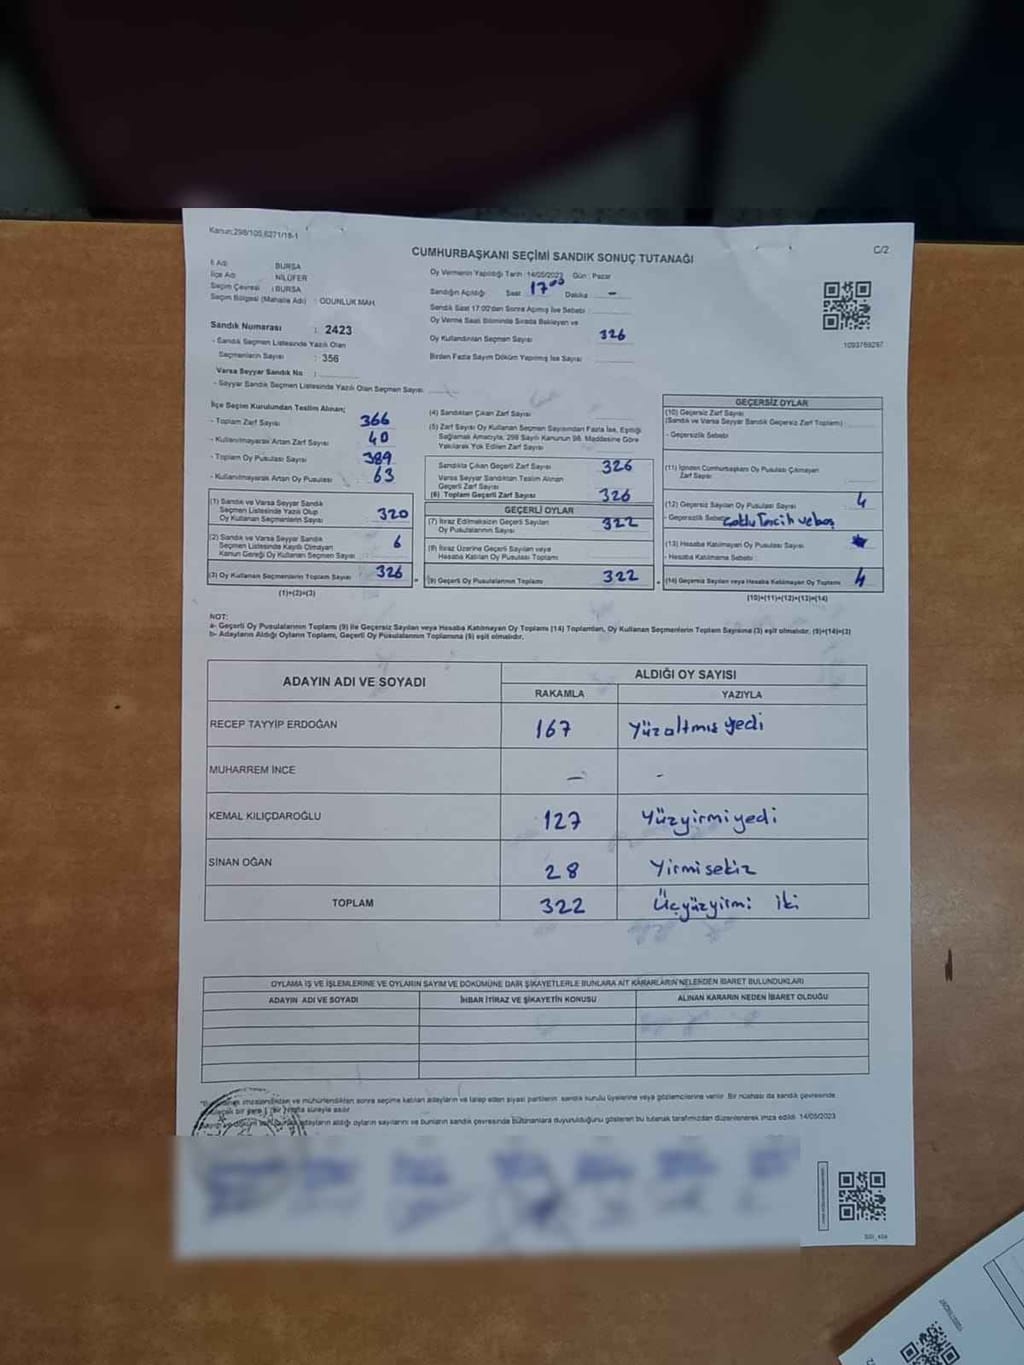 Kanun;298/105,6271/18-1
C/2
CUMHURBAŞKANI SEÇİMİ SANDIK SONUÇ TUTANAĞI
İl Adı : BURSA
İlçe Adı : NİLÜFER
Seçim Çevresi : BURSA
Seçim Bölgesi (Mahalle Adı) : ODUNLUK MAH.
Sandık Numarası : 2423
- Sandık Seçmen Listesinde Yazılı Olan
Seçmenlerin Sayısı : 356
Varsa Seyyar Sandık No :
- Seyyar Sandık Seçmen Listesinde Yazılı Olan Seçmen Sayısı
Oy Vermenin Yapıldığı Tarih : 14/05/2023 Gün : Pazar
Sandığın Açıldığı Saat 17:00 Dakika -
Sandık Saat 17:00'den Sonra Açılmış İse Sebebi :
Oy Verme Saati Bitiminde Sırada Bekleyen ve
Oy Kullandırılan Seçmen Sayısı 326
Birden Fazla Sayım Döküm Yapılmış İse Sayısı
1093769297
İlçe Seçim Kurulundan Teslim Alınan;
- Toplam Zarf Sayısı 366
- Kullanılmayarak Artan Zarf Sayısı 40
- Toplam Oy Pusulası Sayısı 389
- Kullanılmayarak Artan Oy Pusulası 63
(1) Sandık ve Varsa Seyyar Sandık
Seçmen Listesinde Yazılı Olup
Oy Kullanan Seçmenlerin Sayısı 320
(2) Sandık ve Varsa Seyyar Sandık
Seçmen Listesinde Kayıtlı Olmayan
Kanun Gereği Oy Kullanan Seçmen Sayısı 6
(3) Oy Kullanan Seçmenlerin Toplam Sayısı 326
(1)+(2)=(3)
(4) Sandıktan Çıkan Zarf Sayısı
(5) Zarf Sayısı Oy Kullanan Seçmen Sayısından Fazla İse, Eşitliği
Sağlamak Amacıyla, 298 Sayılı Kanunun 98. Maddesine Göre
Yakılarak Yok Edilen Zarf Sayısı
Sandıkta Çıkan Geçerli Zarf Sayısı 326
Varsa Seyyar Sandıktan Teslim Alınan
Geçerli Zarf Sayısı
(6) Toplam Geçerli Zarf Sayısı 326
GEÇERLİ OYLAR
(7) İtiraz Edilmeksizin Geçerli Sayılan
Oy Pusulalarının Sayısı 322
(8) İtiraz Üzerine Geçerli Sayılan veya
Hesaba Katılan Oy Pusulası Toplamı
(9) Geçerli Oy Pusulalarının Toplamı 322
GEÇERSİZ OYLAR
(10) Geçersiz Zarf Sayısı
(Sandık ve Varsa Seyyar Sandık Geçersiz Zarf Toplamı)
- Geçersizlik Sebebi
(11) İçinden Cumhurbaşkanı Oy Pusulası Çıkmayan
Zarf Sayısı
(12) Geçersiz Sayılan Oy Pusulası Sayısı 4
- Geçersizlik Sebebi Çoklu Tercih ve boş
(13) Hesaba Katılmayan Oy Pusulası Sayısı
- Hesaba Katılmama Sebebi
(14) Geçersiz Sayılan veya Hesaba Katılmayan Oy Toplamı 4
(10)+(11)+(12)+(13)=(14)
NOT:
a- Geçerli Oy Pusulalarının Toplamı (9) ile Geçersiz Sayılan veya Hesaba Katılmayan Oy Toplamı (14) Toplamları, Oy Kullanan Seçmenlerin Toplam Sayısına (3) eşit olmalıdır. (9)+(14)=(3)
b- Adayların Aldığı Oyların Toplamı, Geçerli Oy Pusulalarının Toplamına (9) eşit olmalıdır.
ADAYIN ADI VE SOYADI ALDIĞI OY SAYISI
RAKAMLA YAZIYLA
RECEP TAYYİP ERDOĞAN 167 Yüzaltmış yedi
MUHARREM İNCE - -
KEMAL KILIÇDAROĞLU 127 Yüzyirmiyedi
SİNAN OĞAN 28 Yirmisekiz
TOPLAM 322 Üçyüzyirmi iki
OYLAMA İŞ VE İŞLEMLERİNE VE OYLARIN SAYIM VE DÖKÜMÜNE DAİR ŞİKAYETLERLE BUNLARA AİT KARARLARIN NELERDEN İBARET BULUNDUKLARI
ADAYIN ADI VE SOYADI İHBAR İTİRAZ VE ŞİKAYETİN KONUSU ALINAN KARARIN NEDEN İBARET OLDUĞU
imzalandıktan ve mühürlendikten sonra seçime katılan adayların ve talep eden siyasi partilerin sandık kurulu üyelerine veya gözlemcilerine verilir. Bir nüshası da sandık çevresinde
bir yere 1 (bir) hafta süreyle asılır.
adayların aldığı oyların sayılarını ve bunların sandık çevresinde bulunanlara duyurulduğunu gösteren bu tutanak tarafımızdan düzenlenerek imza edildi. 14/05/2023